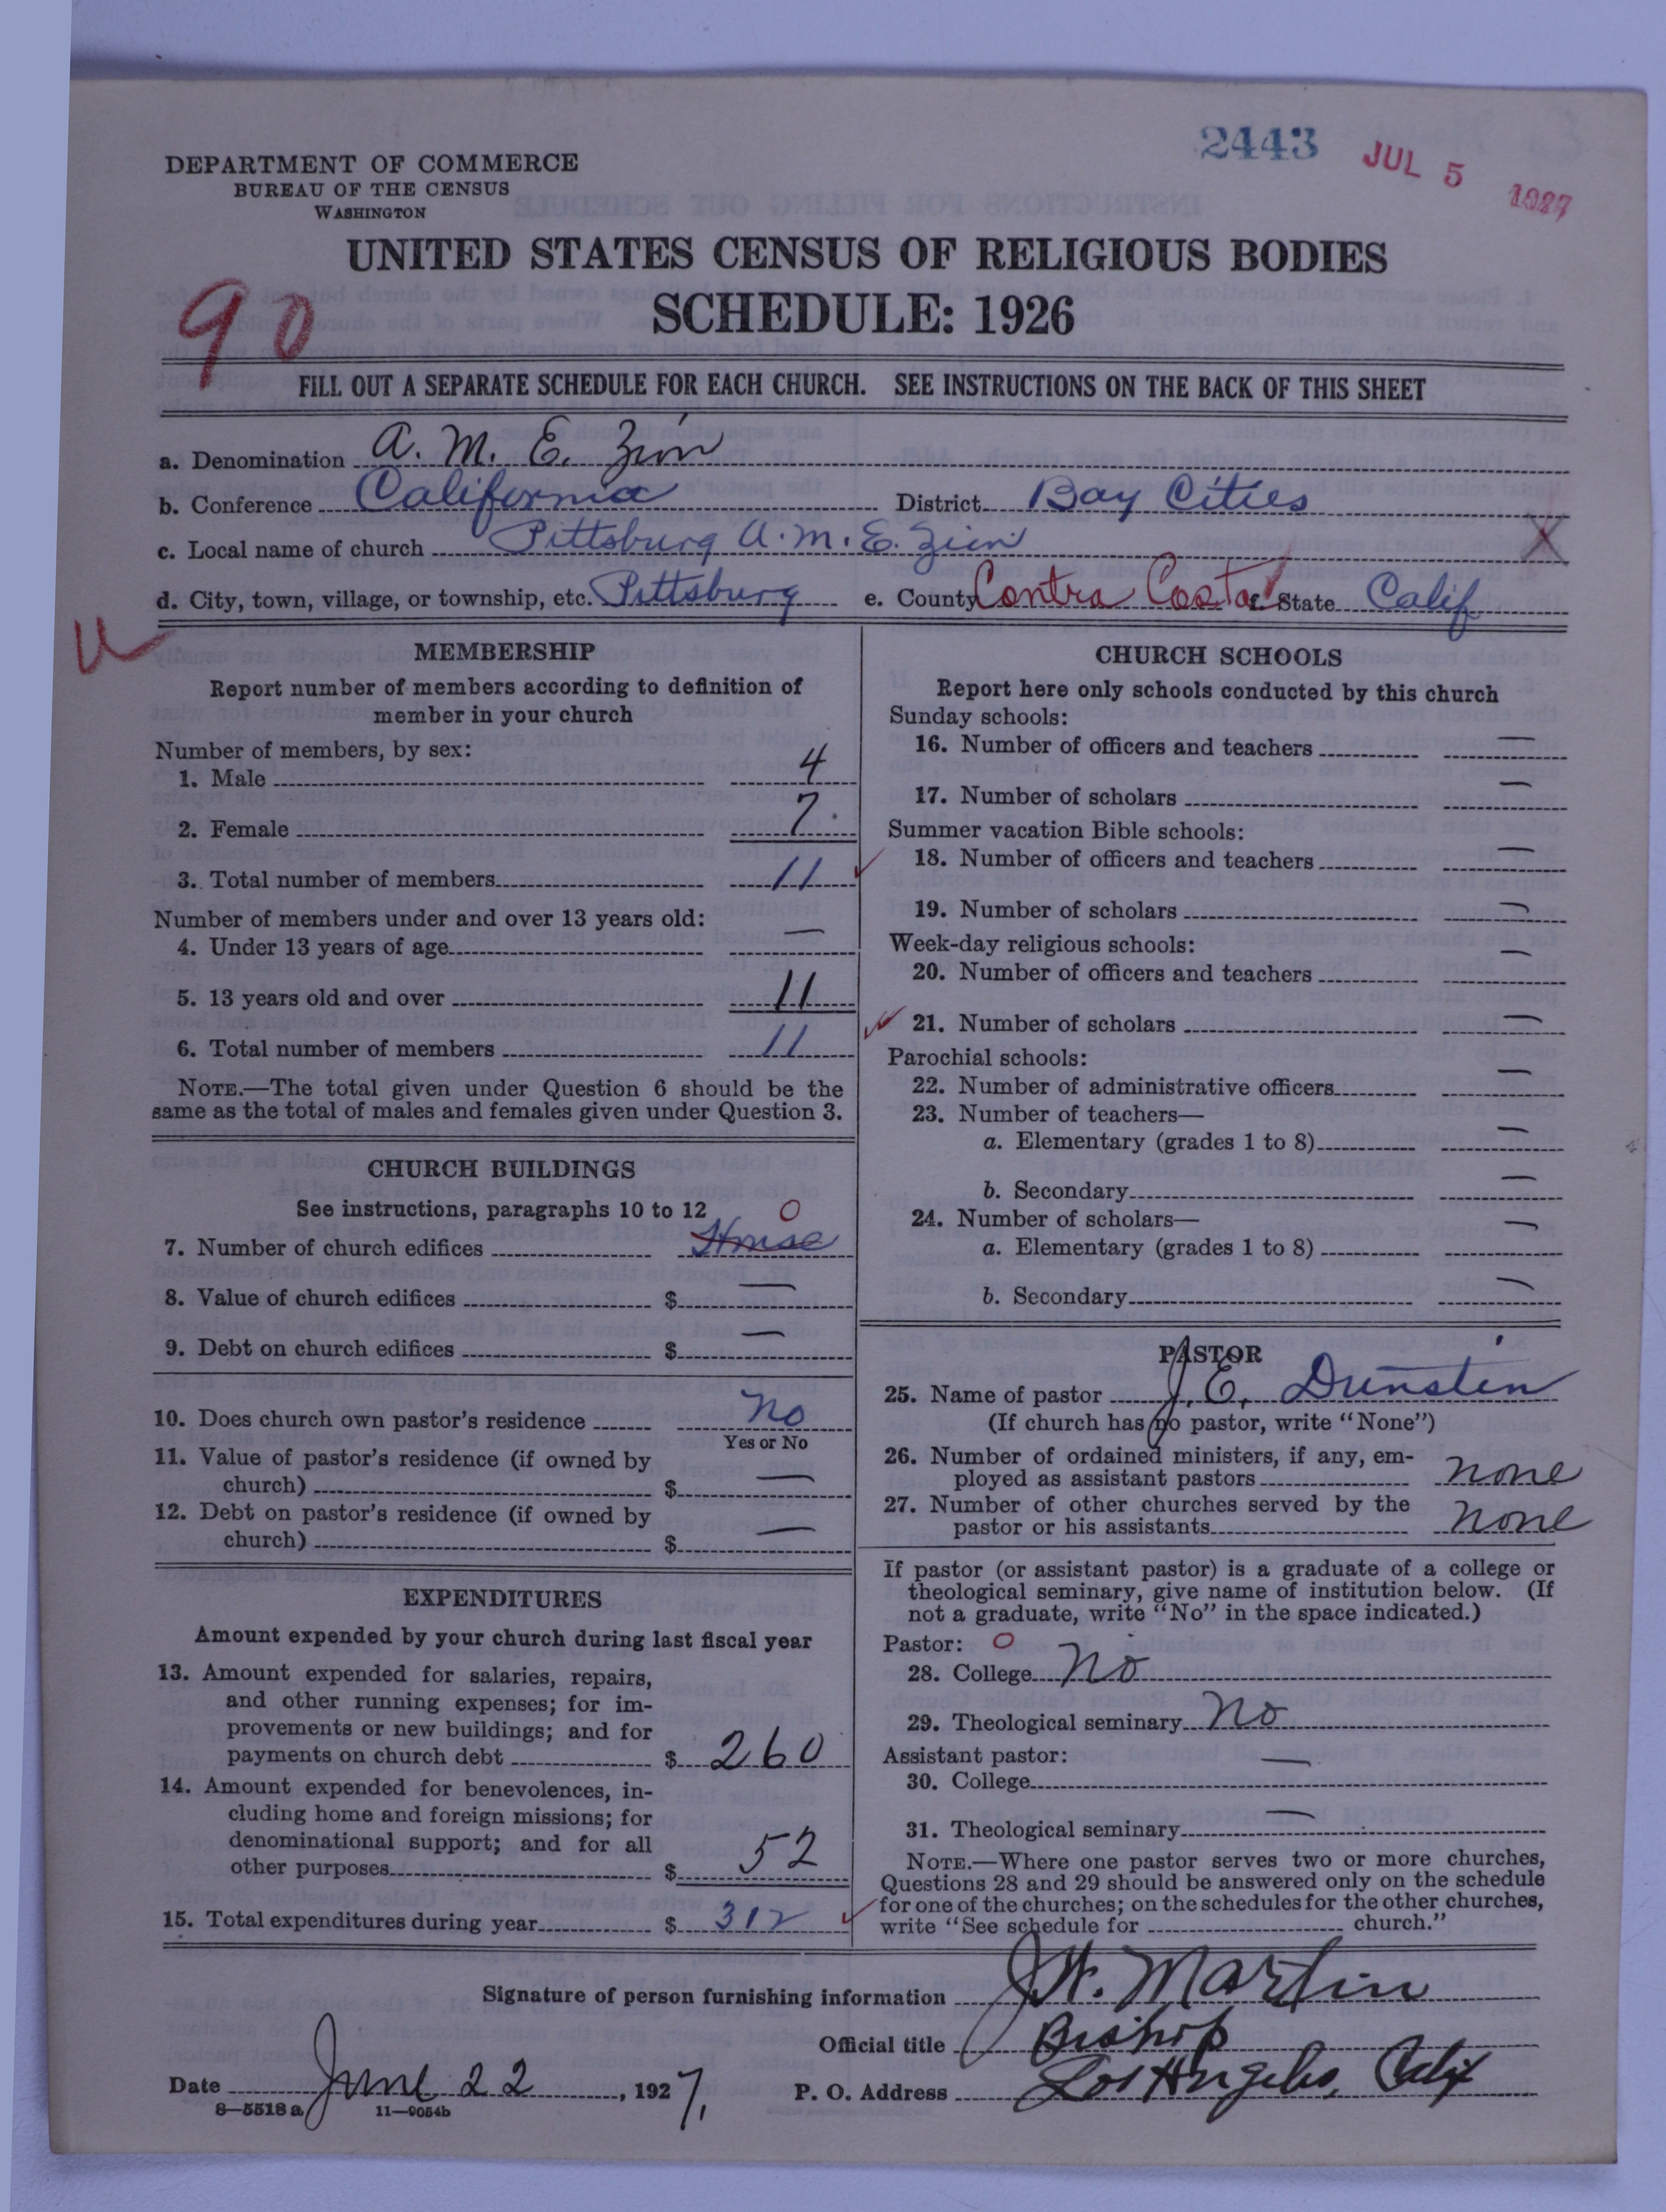 2443
JUL 5 1927
DEPARTMENT OF COMMERCE
BUREAU OF THE CENSUS
WASHINGTON
UNITED STATES CENSUS OF RELIGIOUS BODIES
SCHEDULE: 1926
90
FILL OUT A SEPARATE SCHEDULE FOR EACH CHURCH. SEE INSTRUCTIONS ON THE BACK OF THIS SHEET
a. Denomination A. M. E. Zion
b. Conference California District Bay Cities
c. Local name of church Pittsburg A.M.E. Zion X
d. City, town, village, or township, etc. Pittsburg e. County Contra Costa f. State Calif
MEMBERSHIP
Report number of members according to definition of
member in your church
Number of members, by sex:
1. Male 4
2. Female 7
3. Total number of members 11
Number of members under and over 13 years old:
4. Under 13 years of age —
5. 13 years old and over 11
6. Total number of members 11
NOTE.—The total given under Question 6 should be the
same as the total of males and females given under Question 3.
CHURCH BUILDINGS
See instructions, paragraphs 10 to 12 0
7. Number of church edifices House
8. Value of church edifices $ —
9. Debt on church edifices $ —
10. Does church own pastor's residence No
Yes or No
11. Value of pastor's residence (if owned by
church) $ —
12. Debt on pastor's residence (if owned by
church) $ —
EXPENDITURES
Amount expended by your church during last fiscal year
13. Amount expended for salaries, repairs,
and other running expenses; for im-
provements or new buildings; and for
payments on church debt $ 260
14. Amount expended for benevolences, in-
cluding home and foreign missions; for
denominational support; and for all
other purposes $ 52
15. Total expenditures during year $ 312
CHURCH SCHOOLS
Report here only schools conducted by this church
Sunday schools:
16. Number of officers and teachers —
17. Number of scholars —
Summer vacation Bible schools:
18. Number of officers and teachers —
19. Number of scholars —
Week-day religious schools:
20. Number of officers and teachers —
21. Number of scholars —
Parochial schools:
22. Number of administrative officers —
23. Number of teachers—
a. Elementary (grades 1 to 8) —
b. Secondary —
24. Number of scholars—
a. Elementary (grades 1 to 8) —
b. Secondary —
PASTOR
25. Name of pastor J. E. Dunstin
(If church has no pastor, write "None")
26. Number of ordained ministers, if any, em-
ployed as assistant pastors none
27. Number of other churches served by the
pastor or his assistants none
If pastor (or assistant pastor) is a graduate of a college or
theological seminary, give name of institution below. (If
not a graduate, write "No" in the space indicated.)
Pastor: 0
28. College No
29. Theological seminary No
Assistant pastor:
30. College —
31. Theological seminary —
NOTE.—Where one pastor serves two or more churches,
Questions 28 and 29 should be answered only on the schedule
for one of the churches; on the schedules for the other churches,
write "See schedule for church."
Signature of person furnishing information J. W. Martin
Official title Bishop
Date June 22, 1927, P. O. Address Los Angeles, Calif
8—5518 a 11—9054b